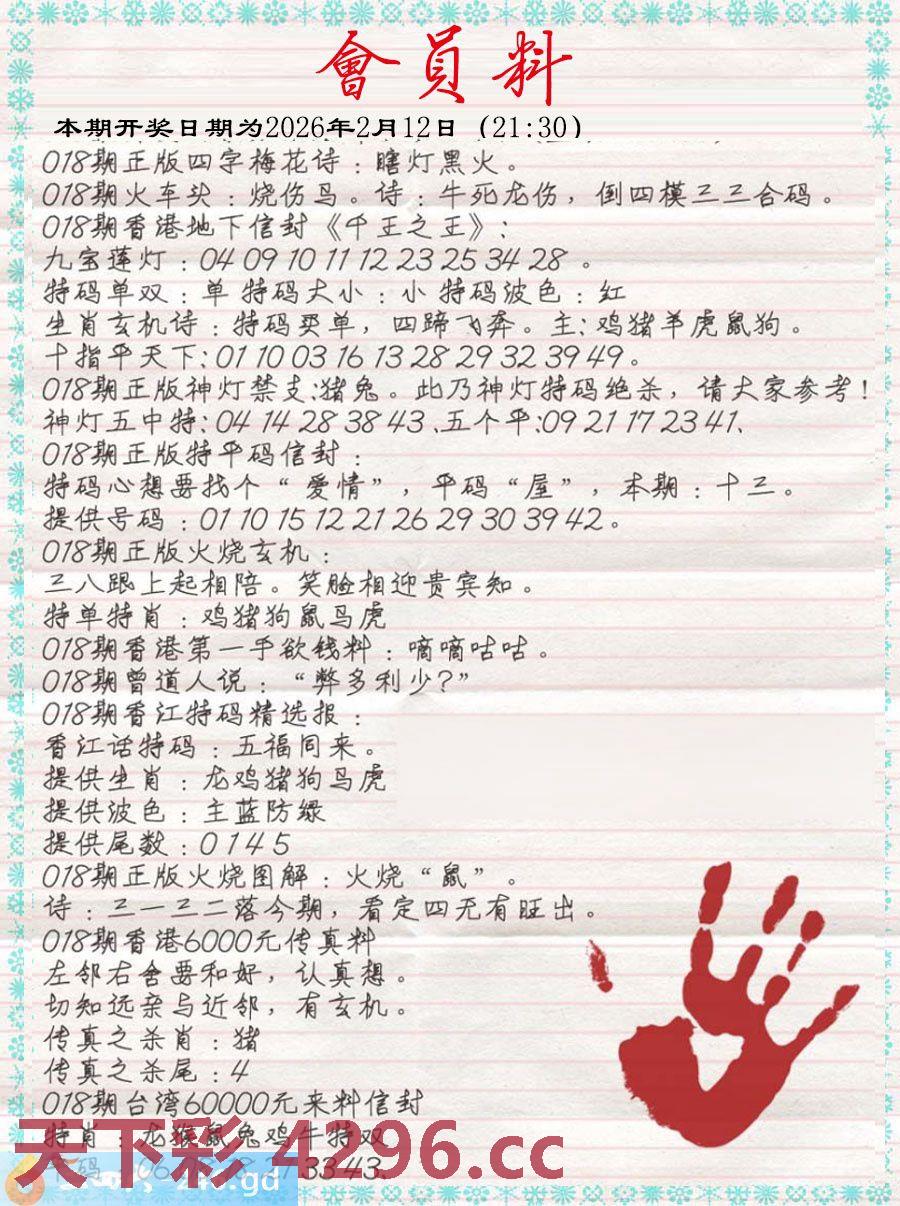 會員料
本期开奖日期为2026年2月12日（21:30）
018期正版四字梅花诗：瞎灯黑火。
018期火车头：烧伤鸟。诗：牛死龙伤，倒四模三三合码。
018期香港地下信封《千王之王》:
九宝莲灯：04 09 10 11 12 23 25 34 28 。
特码单双：单 特码大小：小 特码波色：红
生肖玄机诗：特码买单，四蹄飞奔。主:鸡猪羊虎鼠狗。
十指平天下:01 10 03 16 13 28 29 32 39 49。
018期正版神灯禁支:猪兔。此乃神灯特码绝杀，请大家参考！
神灯五中特:04 14 28 38 43、五个平:09 21 17 23 41、
018期正版特平码信封：
特码心想要找个“爱情”，平码“屋”，本期：十三。
提供号码：01 10 15 12 21 26 29 30 39 42。
018期正版火烧玄机：
三八跟上起相陪。笑脸相迎贵宾知。
特单特肖：鸡猪狗鼠马虎
018期香港第一手欲钱料：嘀嘀咕咕。
018期曾道人说：“弊多利少？”
018期香江特码精选报：
香江话特码：五福同来。
提供生肖：龙鸡猪狗马虎
提供波色：主蓝防绿
提供尾数：0 1 4 5
018期正版火烧图解：火烧“鼠”。
诗：三一三二落今期，看定四无有旺出。
018期香港6000元传真料
左邻右舍要和好，认真想。
切知远亲与近邻，有玄机。
传真之杀肖：猪
传真之杀尾：4
018期台湾60000元来料信封
特肖：龙猴鼠兔鸡牛特双
天下彩4296.cc
33 43、